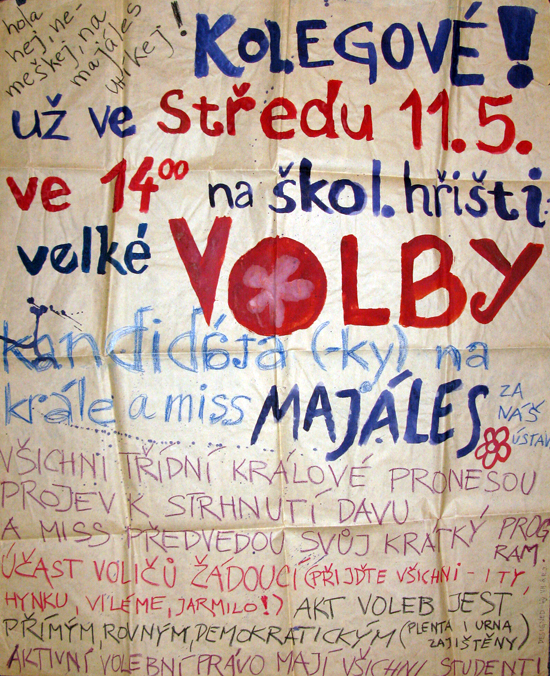 hola
hej, ne-
meškej, na
majáles
utíkej!
KOLEGOVÉ!
už ve Středu 11.5.
ve 14⁰⁰ na škol. hřišti
velké VOLBY
kandidáta (-ky) na
krále a miss MAJÁLES ZA
NÁŠ
ÚSTAV
VŠICHNI TŘÍDNÍ KRÁLOVÉ PRONESOU
PROJEV K STRHNUTÍ DAVU
A MISS PŘEDVEDOU SVŮJ KRÁTKÝ PROG
RAM.
ÚČAST VOLIČŮ ŽÁDOUCÍ (PŘIJĎTE VŠICHNI - I TY,
HYNKU, VILÉME, JARMILO!) AKT VOLEB JEST
PŘÍMÝM, ROVNÝM, DEMOKRATICKÝM (PLENTA I URNA
ZAJIŠTĚNY)
AKTIVNÍ VOLEBNÍ PRÁVO MAJÍ VŠICHNI STUDENTI